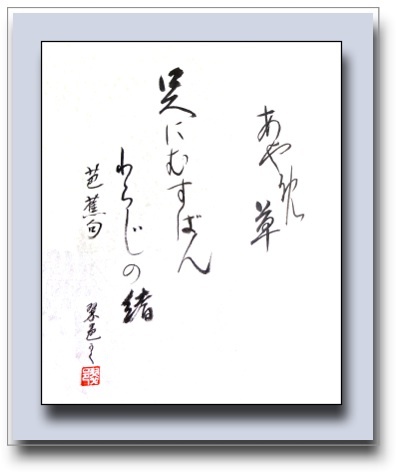 あやめ草
足にむすばん
わらじの緒
芭蕉句